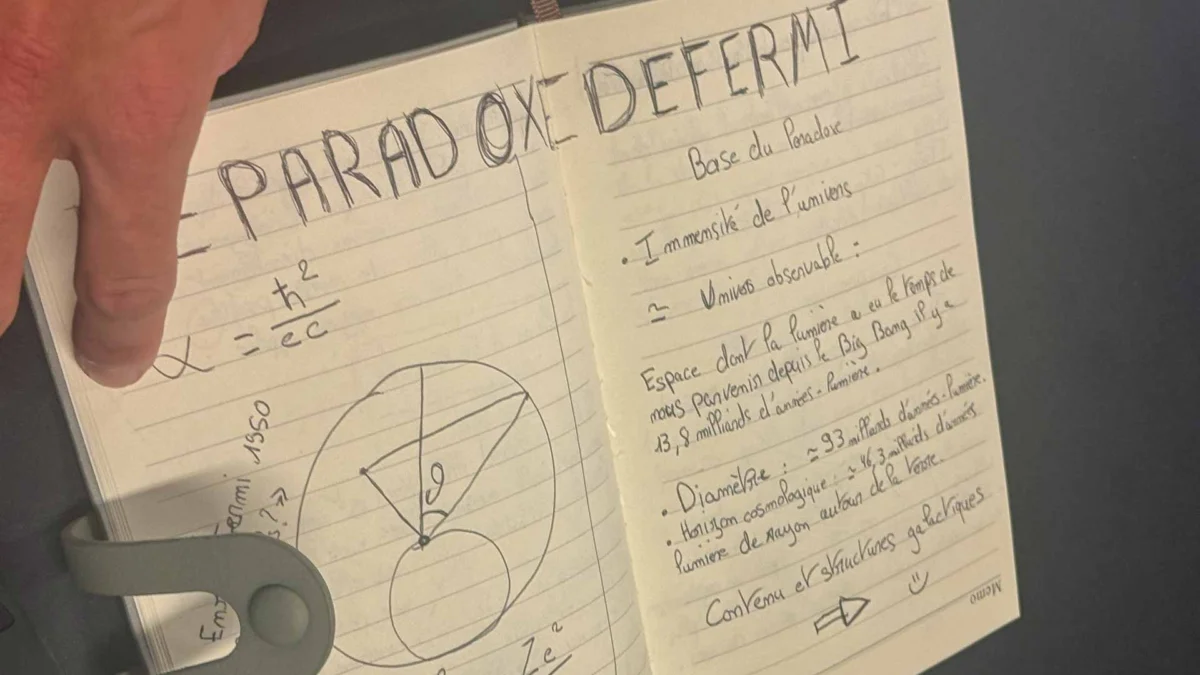 PARADOXE DE FERMI
α = ħ²
ec
1950
θ
Ze²
Base du Paradoxe
• Immensité de l'univers
≃ Univers observable :
Espace dont la lumière a eu le temps de
nous parvenir depuis le Big Bang il y a
13,8 milliards d'années-lumière.
• Diamètre : ≃ 93 milliards d'années-lumière.
• Horizon cosmologique : ≃ 46,3 milliards d'années
lumière de rayon autour de la Terre.
Contenu et structures galactiques
Memo